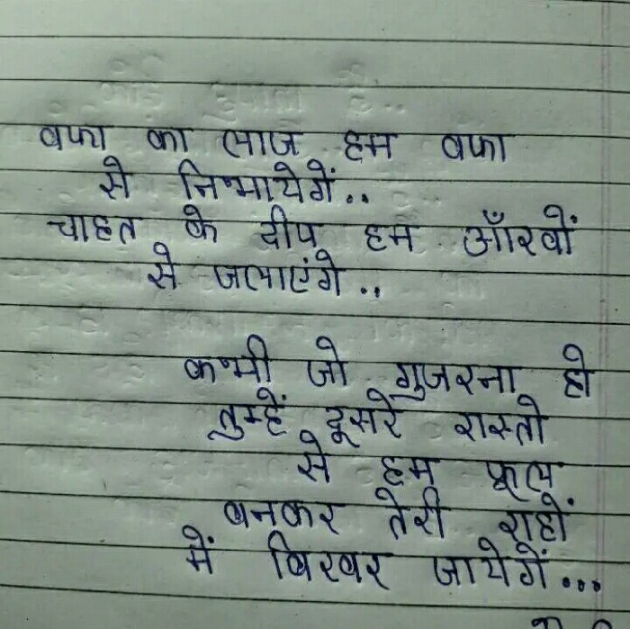 वफा का लाज हम वफा
से निभायेगें..
चाहत के दीप हम आँखों
से जलाएंगे..
कभी जो गुजरना हो
तुम्हें दूसरे रास्तो
से हम फूल
बनकर तेरी राहों
में बिखर जायेगें...